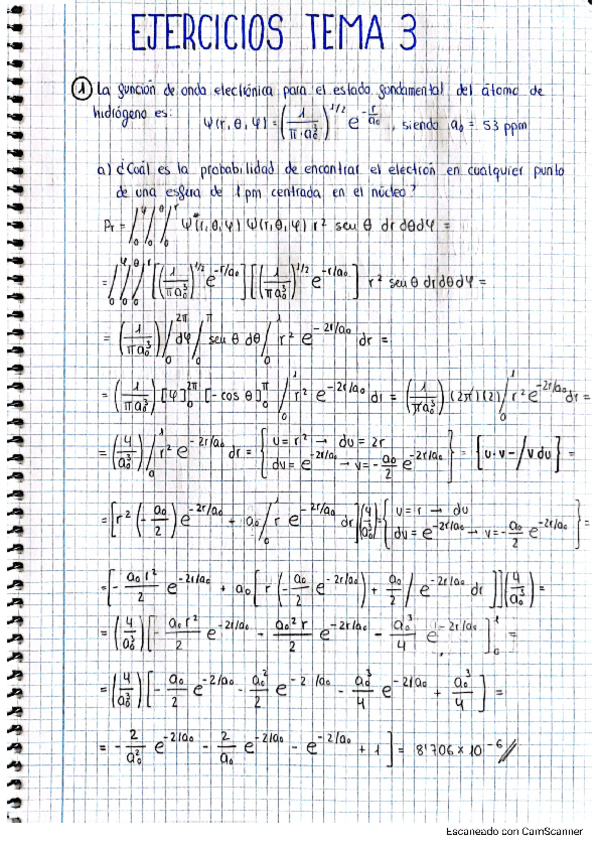 EJERCICIOS TEMA 3
① La función de onda electrónica para el estado fondamental del átomo de
hidrógeno es: Ψ(r, θ, φ) = (1/π·a₀³)^1/2 e^-r/a₀, siendo a₀ = 53 ppm
a) ¿Cuál es la probabilidad de encontrar el electrón en cualquier punto
de una esfera de 1 pm centrada en el núcleo?
Pr = ∫₀^φ ∫₀^θ ∫₀^r Ψ*(r, θ, φ) Ψ(r, θ, φ) r² sen θ dr dθ dφ =
= ∫₀^φ ∫₀^θ ∫₀^r [(1/πa₀³)^1/2 e^-r/a₀] [(1/πa₀³)^1/2 e^-r/a₀] r² sen θ dr dθ dφ =
= (1/πa₀³) ∫₀^2π dφ ∫₀^π sen θ dθ ∫₀^1 r² e^-2r/a₀ dr =
= (1/πa₀³) [φ]₀^2π [-cos θ]₀^π ∫₀^1 r² e^-2r/a₀ dr = (1/πa₀³) (2π) (2) ∫₀^1 r² e^-2r/a₀ dr =
= (4/a₀³) ∫₀^1 r² e^-2r/a₀ dr = { u = r² → du = 2r dv = e^-2r/a₀ → v = -a₀/2 e^-2r/a₀ } = { u·v - ∫v du } =
= [r² (-a₀/2) e^-2r/a₀ + a₀ ∫₀^1 r e^-2r/a₀ dr] (4/a₀³) = { u = r → du dv = e^-2r/a₀ → v = -a₀/2 e^-2r/a₀ } =
= [-a₀r²/2 e^-2r/a₀ + a₀ [r (-a₀/2 e^-2r/a₀) + a₀/2 ∫ e^-2r/a₀ dr]] (4/a₀³) =
= (4/a₀³) [-a₀r²/2 e^-2r/a₀ - a₀²r/2 e^-2r/a₀ - a₀³/4 e^-2r/a₀]₀^1 =
= (4/a₀³) [-a₀/2 e^-2/a₀ - a₀²/2 e^-2/a₀ - a₀³/4 e^-2/a₀ + a₀³/4] =
= -2/a₀² e^-2/a₀ - 2/a₀ e^-2/a₀ - e^-2/a₀ + 1] = 8'706 × 10^-6 //
Escaneado con CamScanner